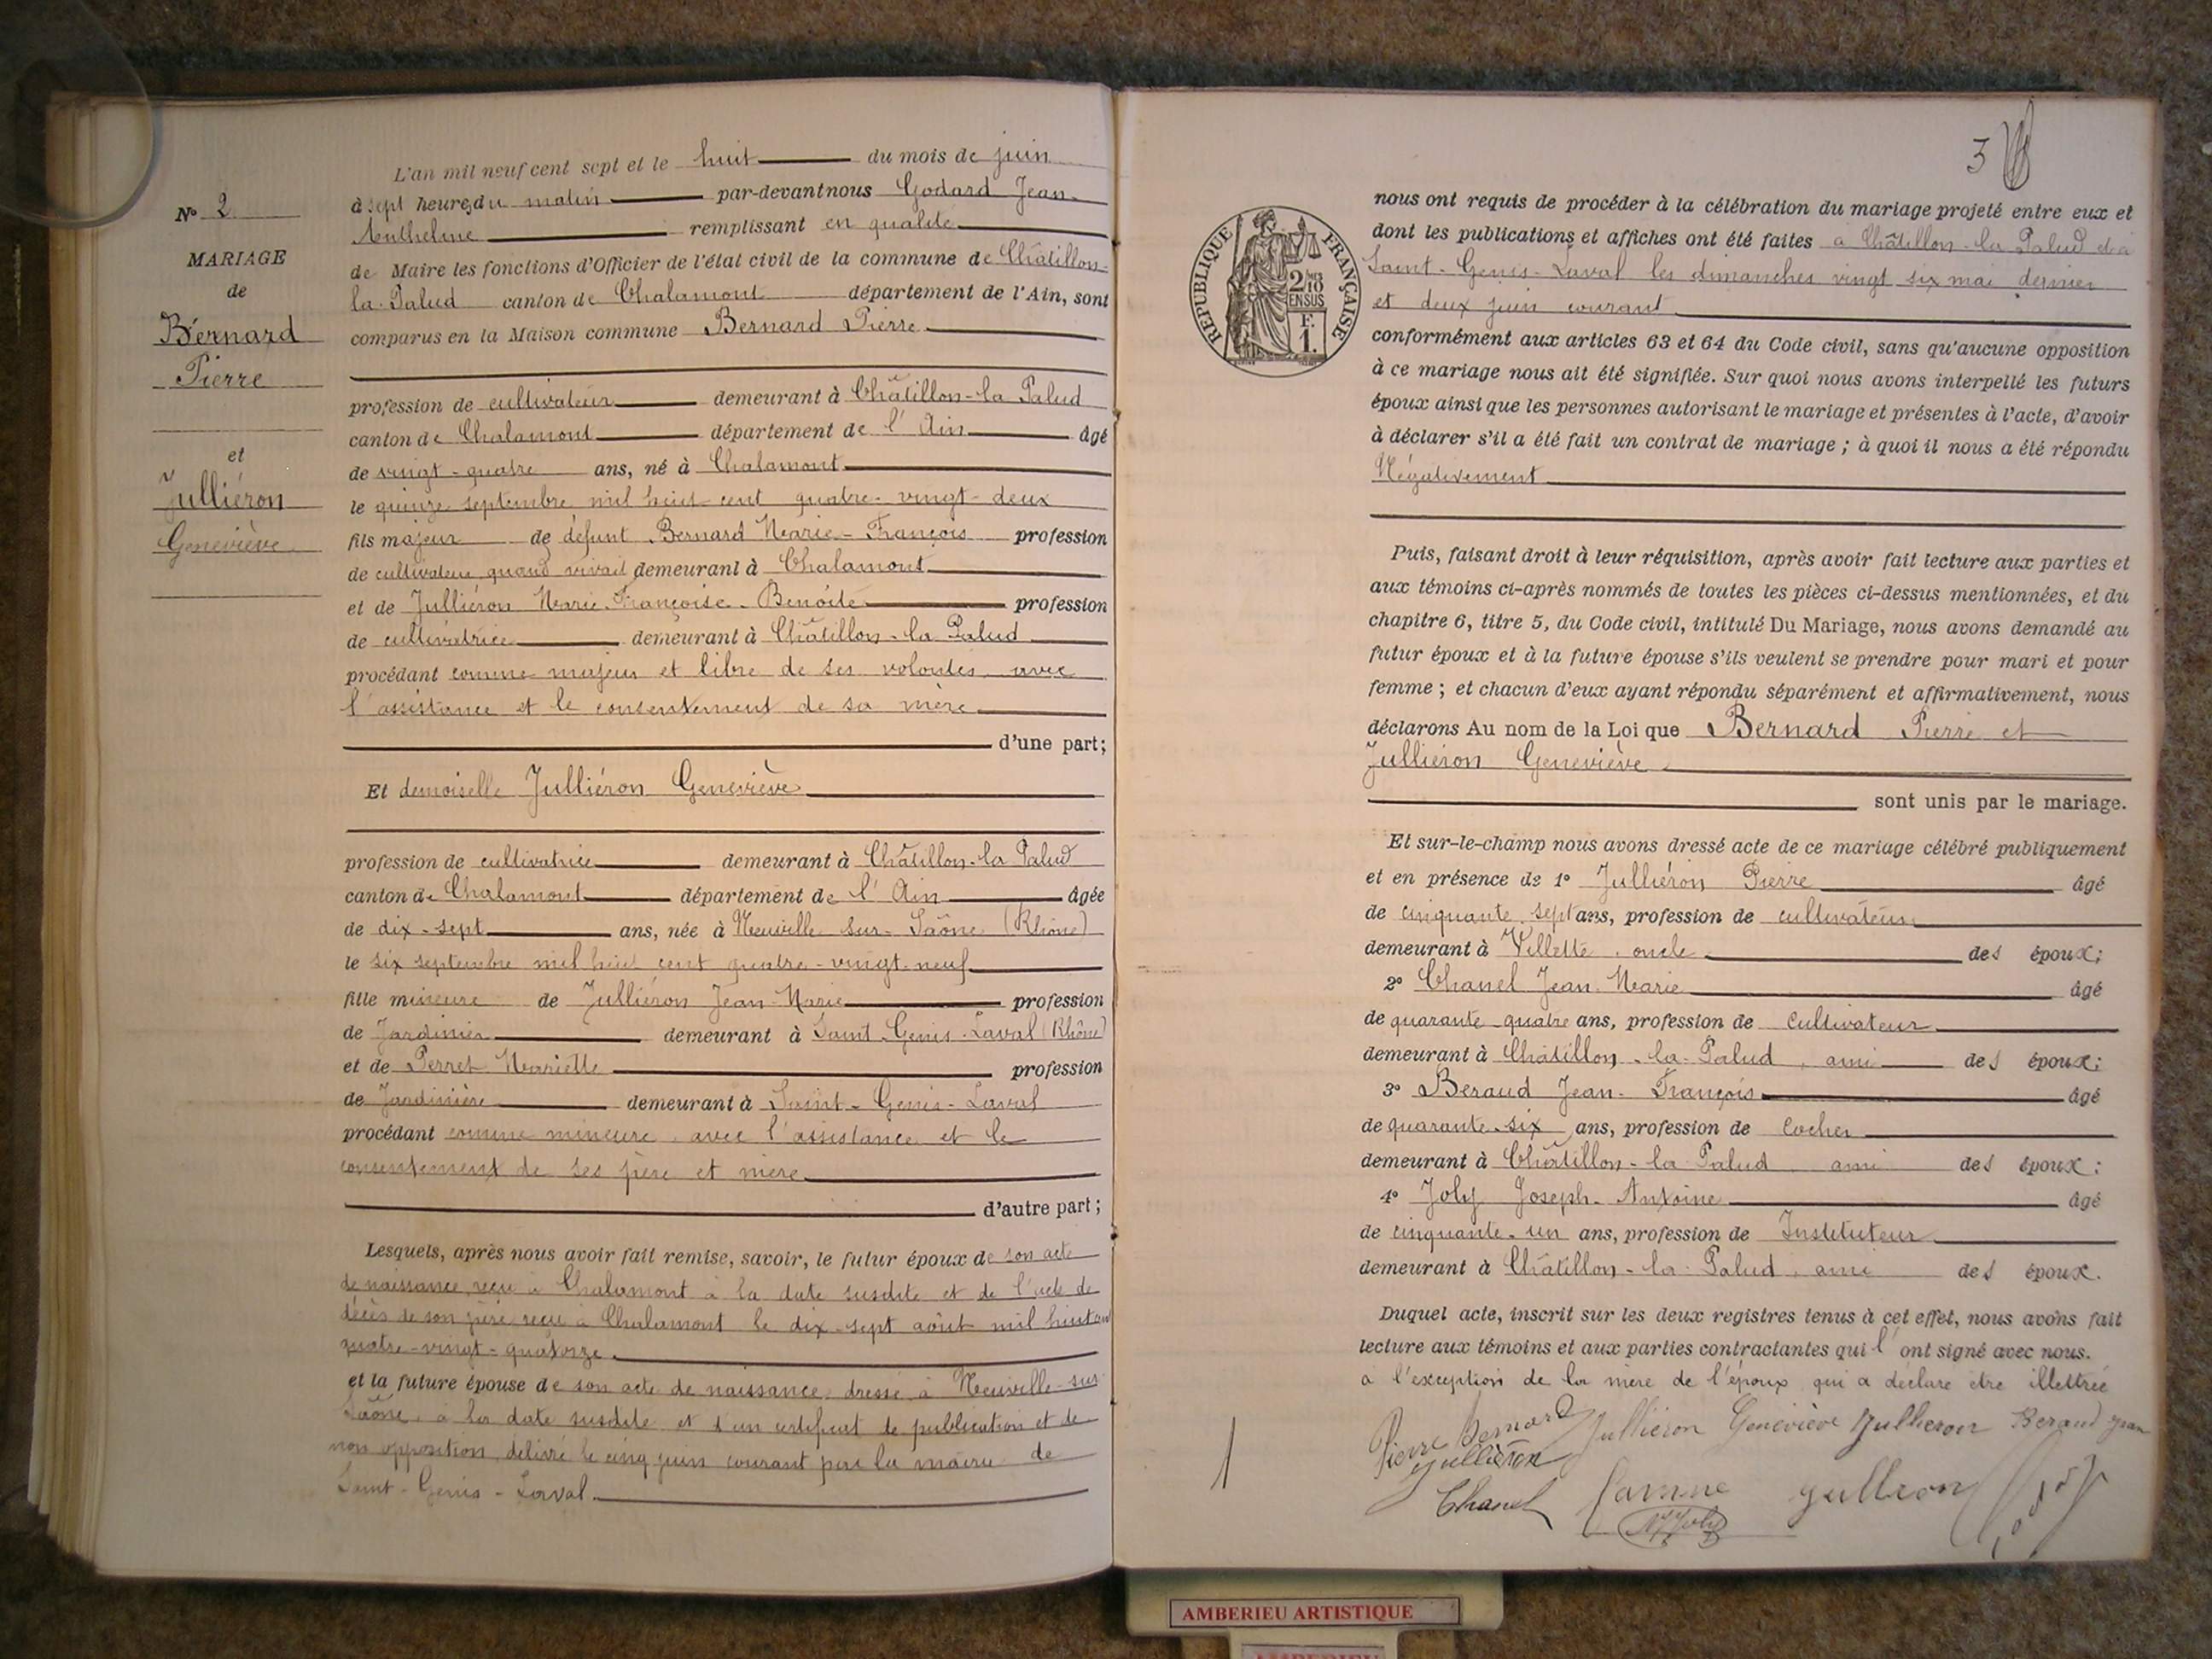 N° 2
MARIAGE
de
Bernard
Pierre
et
Julliéron
Geneviève
L'an mil neuf cent sept et le huit du mois de juin
à sept heures du matin par-devant nous Godard Jean-
Anthelme remplissant en qualité
de Maire les fonctions d'Officier de l'état civil de la commune de Châtillon-
la-Palud canton de Chalamont département de l'Ain, sont
comparus en la Maison commune Bernard Pierre
profession de cultivateur demeurant à Châtillon-la Palud
canton de Chalamont département de l'Ain âgé
de vingt-quatre ans, né à Chalamont
le quinze septembre mil huit cent quatre-vingt-deux
fils majeur de défunt Bernard Marie-François profession
de cultivateur quand vivait demeurant à Chalamont
et de Julliéron Marie-Françoise-Benoîte profession
de cultivatrice demeurant à Châtillon-la Palud
procédant comme majeur et libre de ses volontés avec
l'assistance et le consentement de sa mère
d'une part;
Et demoiselle Julliéron Geneviève
profession de cultivatrice demeurant à Châtillon-la Palud
canton de Chalamont département de l'Ain âgée
de dix-sept ans, née à Neuville-sur-Saône (Rhône)
le six septembre mil huit cent quatre-vingt-neuf
fille mineure de Julliéron Jean-Marie profession
de Jardinier demeurant à Saint-Genis-Laval (Rhône)
et de Perret Mariette profession
de Jardinière demeurant à Saint-Genis-Laval
procédant comme mineure, avec l'assistance et le
consentement de ses père et mère
d'autre part;
Lesquels, après nous avoir fait remise, savoir, le futur époux de son acte
de naissance reçu à Chalamont à la date susdite et de l'acte de
décès de son père reçu à Chalamont le dix-sept août mil huit cent
quatre-vingt-quatorze
et la future épouse de son acte de naissance dressé à Neuville-sur
Saône, à la date susdite et d'un certificat de publication et de
non opposition délivré le cinq juin courant par la mairie de
Saint-Genis-Laval
3
REPUBLIQUE FRANÇAISE
2/10 EN SUS
F. 1.
nous ont requis de procéder à la célébration du mariage projeté entre eux et
dont les publications et affiches ont été faites à Châtillon-la Palud et à
Saint-Genis-Laval les dimanches vingt six mai dernier
et deux juin courant
conformément aux articles 63 et 64 du Code civil, sans qu'aucune opposition
à ce mariage nous ait été signifiée. Sur quoi nous avons interpellé les futurs
époux ainsi que les personnes autorisant le mariage et présentes à l'acte, d'avoir
à déclarer s'il a été fait un contrat de mariage ; à quoi il nous a été répondu
Négativement
Puis, faisant droit à leur réquisition, après avoir fait lecture aux parties et
aux témoins ci-après nommés de toutes les pièces ci-dessus mentionnées, et du
chapitre 6, titre 5, du Code civil, intitulé Du Mariage, nous avons demandé au
futur époux et à la future épouse s'ils veulent se prendre pour mari et pour
femme ; et chacun d'eux ayant répondu séparément et affirmativement, nous
déclarons Au nom de la Loi que Bernard Pierre et
Julliéron Geneviève
sont unis par le mariage.
Et sur-le-champ nous avons dressé acte de ce mariage célébré publiquement
et en présence de 1° Julliéron Pierre âgé
de cinquante-sept ans, profession de cultivateur
demeurant à Villette, oncle des époux;
2° Chanel Jean-Marie âgé
de quarante-quatre ans, profession de Cultivateur
demeurant à Châtillon-la-Palud, ami des époux;
3° Beraud Jean-François âgé
de quarante-six ans, profession de Cocher
demeurant à Châtillon-la Palud ami des époux;
4° Joly Joseph-Antoine âgé
de cinquante-un ans, profession de Instituteur
demeurant à Châtillon-la-Palud, ami des époux.
Duquel acte, inscrit sur les deux registres tenus à cet effet, nous avons fait
lecture aux témoins et aux parties contractantes qui l'ont signé avec nous.
à l'exception de la mère de l'époux qui a déclaré être illettrée
Pierre Bernard Julliéron Geneviève Julliéron Beraud Jean
Julliéron
Chanel
AMBERIEU ARTISTIQUE
AMBERIEU